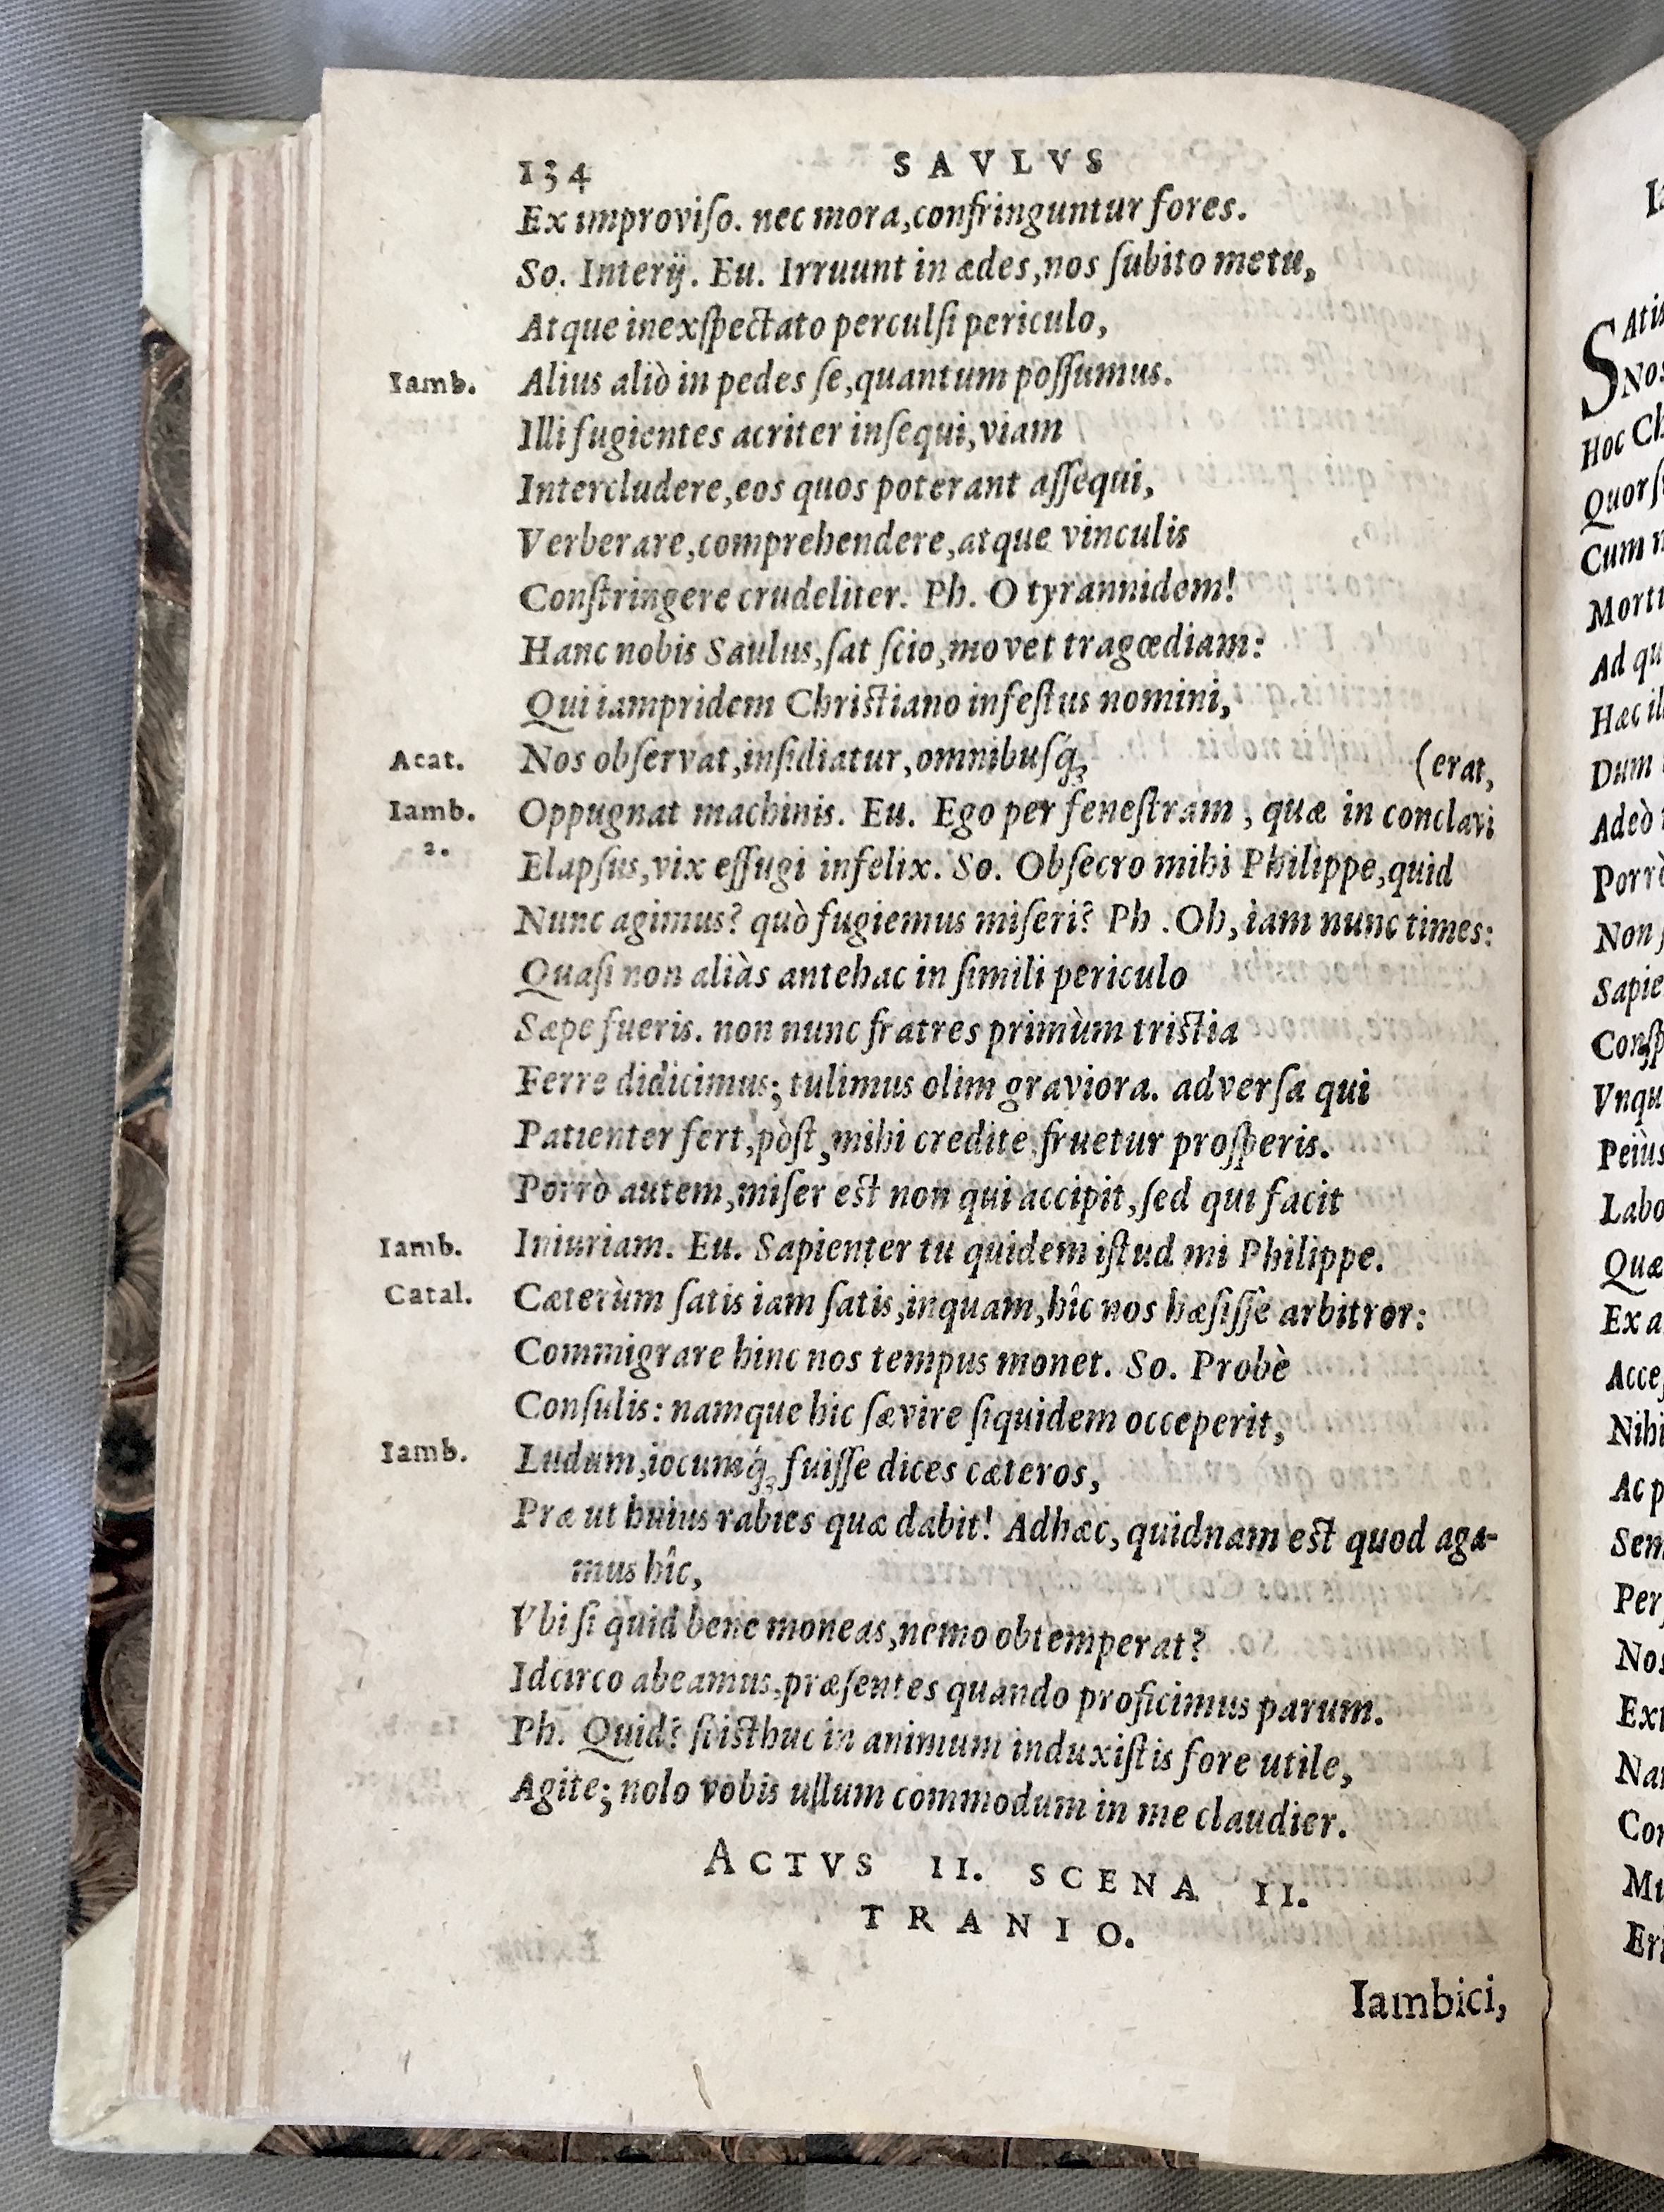 134 SAVLVS
Ex improviſo. nec mora,confringuntur fores.
So. Interij. Eu. Irruunt in ædes,nos ſubito metu,
Atque inexſpectato perculſi periculo,
Iamb. Alius aliò in pedes ſe,quantum poſſumus.
Illi fugientes acriter inſequi,viam
Intercludere,eos quos poterant aſſequi,
Verberare,comprehendere,atque vinculis
Conſtringere crudeliter. Ph. O tyrannidem!
Hanc nobis Saulus,ſat ſcio,movet tragœdiam:
Qui iampridem Chriſtiano infeſtus nomini,
Acat. Nos obſervat,inſidiatur,omnibuſq́; (erat,
Iamb. Oppugnat machinis. Eu. Ego per feneſtram, quæ in conclavi
2. Elapſus,vix effugi infelix. So. Obſecro mihi Philippe,quid
Nunc agimus? quò fugiemus miſeri? Ph. Oh,iam nunc times:
Quaſi non aliàs antehac in ſimili periculo
Sæpe fueris. non nunc fratres primùm triſtia
Ferre didicimus; tulimus olim graviora. adverſa qui
Patienter fert,pòſt,mihi credite,fruetur proſperis.
Porrò autem,miſer eſt non qui accipit,ſed qui facit
Iamb. Iniuriam. Eu. Sapienter tu quidem iſtud mi Philippe.
Catal. Cæterùm ſatis iam ſatis,inquam,hîc nos hæſiſſe arbitror:
Commigrare hinc nos tempus monet. So. Probè
Conſulis: namque hic ſævire ſiquidem occeperit,
Iamb. Ludum,iocumq́; fuiſſe dices cæteros,
Præ ut huius rabies quæ dabit! Adhæc, quidnam eſt quod aga-
mus hîc,
Vbi ſi quid bene moneas,nemo obtemperat?
Idcirco abeamus,præſentes quando proficimus parum.
Ph. Quid? ſi iſthuc in animum induxiſtis fore utile,
Agite; nolo vobis ullum commodum in me claudier.
ACTVS II. SCENA II.
TRANIO.
Iambici,
S Atis
Nos
Hoc Ch
Quorſ
Cum
Mort
Ad qu
Hæc il
Dum
Adeò
Porrò
Non
Sapie
Conſp
Vnqu
Peiùs
Labo
Quæ
Ex a
Acce
Nihi
Ac p
Sem
Per
Nos
Ext
Nar
Con
Mu
Eri